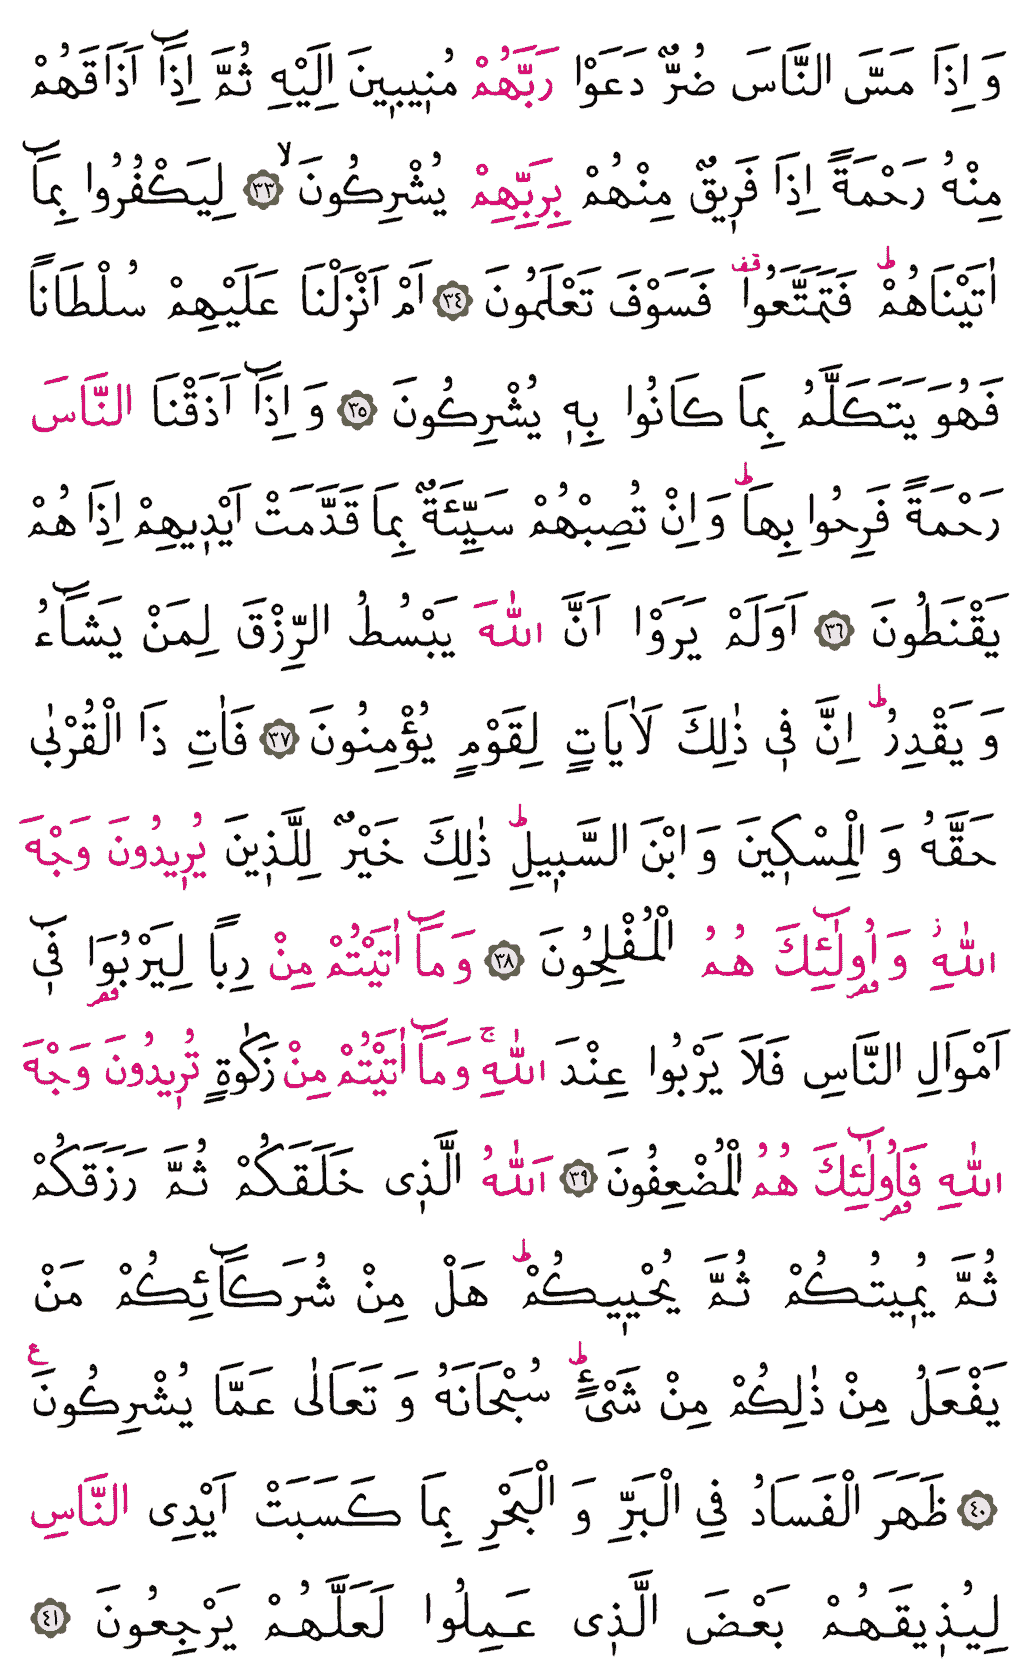 وَ اِذَا مَسَّ النَّاسَ ضُرٌّ دَعَوْا رَبَّهُمْ مُنٖيبٖينَ اِلَيْهِ ثُمَّ اِذَٓا اَذَاقَهُمْ
مِنْهُ رَحْمَةً اِذَا فَرٖيقٌ مِنْهُمْ بِرَبِّهِمْ يُشْرِكُونَۙ ٣٣ لِيَكْفُرُوا بِمَٓا
اٰتَيْنَاهُمْؕ فَتَمَتَّعُواࣞ فَسَوْفَ تَعْلَمُونَ ٣٤ اَمْ اَنْزَلْنَا عَلَيْهِمْ سُلْطَانًا
فَهُوَ يَتَكَلَّمُ بِمَا كَانُوا بِهٖ يُشْرِكُونَ ٣٥ وَ اِذَٓا اَذَقْنَا النَّاسَ
رَحْمَةً فَرِحُوا بِهَاؕ وَ اِنْ تُصِبْهُمْ سَيِّئَةٌ بِمَا قَدَّمَتْ اَيْدٖيهِمْ اِذَا هُمْ
يَقْنَطُونَ ٣٦ اَوَلَمْ يَرَوْا اَنَّ اللّٰهَ يَبْسُطُ الرِّزْقَ لِمَنْ يَشَٓاءُ
وَ يَقْدِرُؕ اِنَّ فٖى ذٰلِكَ لَاٰيَاتٍ لِقَوْمٍ يُؤْمِنُونَ ٣٧ فَاٰتِ ذَا الْقُرْبٰى
حَقَّهُ وَ الْمِسْكٖينَ وَ ابْنَ السَّبٖيلِؕ ذٰلِكَ خَيْرٌ لِلَّذٖينَ يُرٖيدُونَ وَجْهَ
اللّٰهِؗ وَ اُو۬لٰٓئِكَ هُمُ الْمُفْلِحُونَ ٣٨ وَ مَٓا اٰتَيْتُمْ مِنْ رِبًا لِيَرْبُوَا۬ فٖٓى
اَمْوَالِ النَّاسِ فَلَا يَرْبُوا عِنْدَ اللّٰهِۚ وَ مَٓا اٰتَيْتُمْ مِنْ زَكٰوةٍ تُرٖيدُونَ وَجْهَ
اللّٰهِ فَاُو۬لٰٓئِكَ هُمُ الْمُضْعِفُونَ ٣٩ اَللّٰهُ الَّذٖى خَلَقَكُمْ ثُمَّ رَزَقَكُمْ
ثُمَّ يُمٖيتُكُمْ ثُمَّ يُحْيٖيكُمْؕ هَلْ مِنْ شُرَكَٓائِكُمْ مَنْ
يَفْعَلُ مِنْ ذٰلِكُمْ مِنْ شَىْءٍؕ سُبْحَانَهُ وَ تَعَالٰى عَمَّا يُشْرِكُونَ ع
٤٠ ظَهَرَ الْفَسَادُ فِى الْبَرِّ وَ الْبَحْرِ بِمَا كَسَبَتْ اَيْدِى النَّاسِ
لِيُذٖيقَهُمْ بَعْضَ الَّذٖى عَمِلُوا لَعَلَّهُمْ يَرْجِعُونَ ٤١